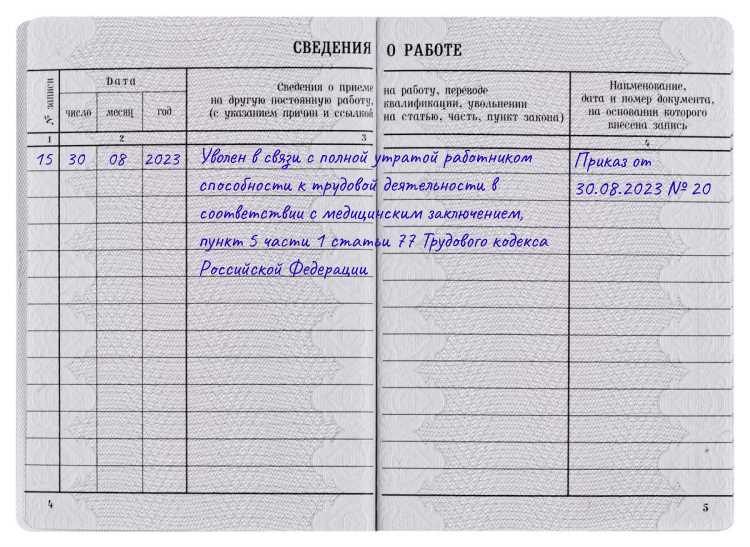 СВЕДЕНИЯ О РАБОТЕ
№ записи
Дата
число
месяц
год
Сведения о приеме на работу, переводе
на другую постоянную работу, квалификации, увольнении
(с указанием причин и ссылкой на статью, часть, пункт закона)
Наименование,
дата и номер документа,
на основании которого
внесена запись
1 2 3 4
15 30 08 2023 Уволен в связи с полной утратой работником Приказ от
способности к трудовой деятельности в 30.08.2023 № 20
соответствии с медицинским заключением,
пункт 5 части 1 статьи 77 Трудового кодекса
Российской Федерации
4 5